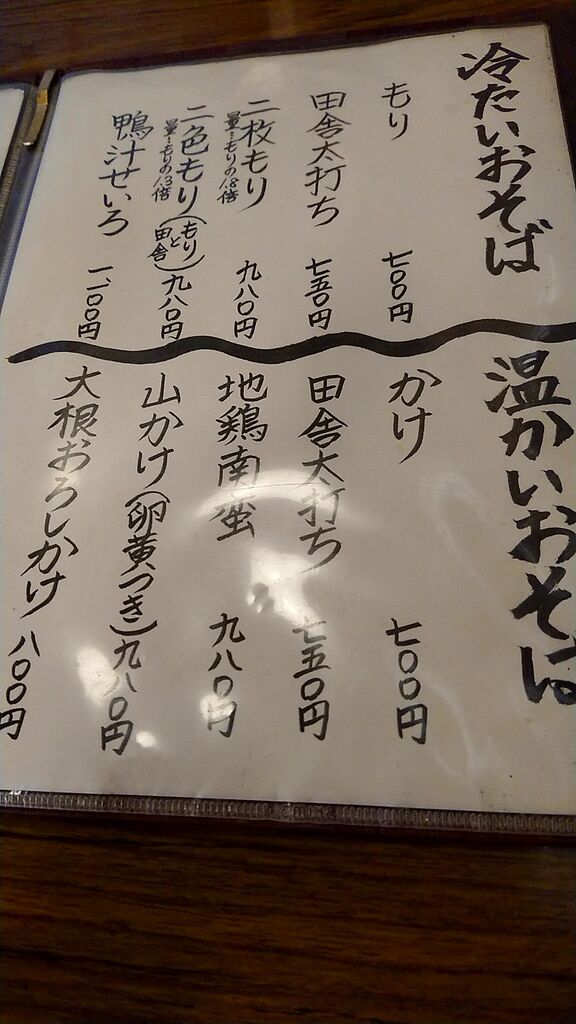 冷たいおそば
もり 七〇〇円
田舎太打ち 七五〇円
二枚もり 九八〇円
量=もりの1.8倍
二色もり(もりと田舎)九八〇円
量=もりの1.3倍
鴨汁せいろ 一、一〇〇円
温かいおそば
かけ 七〇〇円
田舎太打ち 七五〇円
地鶏南蛮 九八〇円
山かけ(卵黄つき)九八〇円
大根おろしかけ 八〇〇円